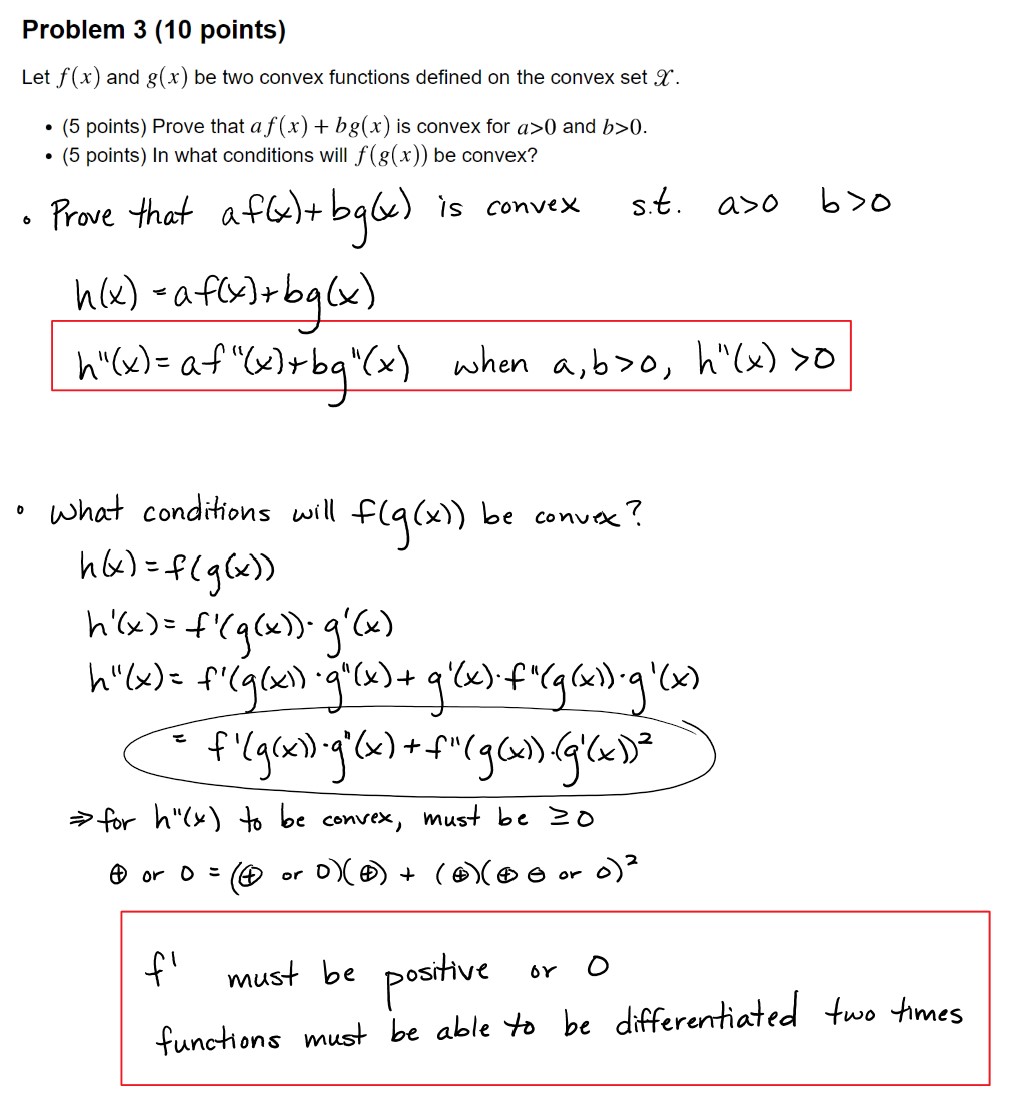 Problem 3 (10 points)
Let f(x) and g(x) be two convex functions defined on the convex set 𝒳.
• (5 points) Prove that a f(x) + bg(x) is convex for a>0 and b>0.
• (5 points) In what conditions will f(g(x)) be convex?
• Prove that af(x)+bg(x) is convex s.t. a>0 b>0
h(x) = af(x)+bg(x)
h"(x)= af"(x)+bg"(x) when a,b>0, h"(x) >0
• What conditions will f(g(x)) be convex?
h(x) = f(g(x))
h'(x)= f'(g(x))· g'(x)
h"(x)= f'(g(x)) ·g"(x)+ g'(x)·f"(g(x))·g'(x)
= f'(g(x))·g"(x)+f"(g(x))·(g'(x))²
⇒ for h"(x) to be convex, must be ≥0
⊕ or 0 = (⊕ or 0)(⊕) + (⊕)(⊕ ⊖ or 0)²
f' must be positive or 0
functions must be able to be differentiated two times